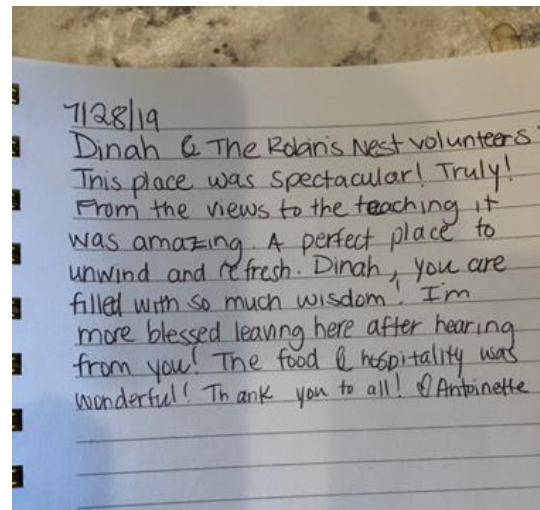 7/28/19
Dinah & The Robin's Nest volunteers
This place was spectacular! Truly!
From the views to the teaching it
was amazing. A perfect place to
unwind and refresh. Dinah, you are
filled with so much wisdom! I'm
more blessed leaving here after hearing
from you! The food & hospitality was
wonderful! Thank you to all! ♡ Antoinette